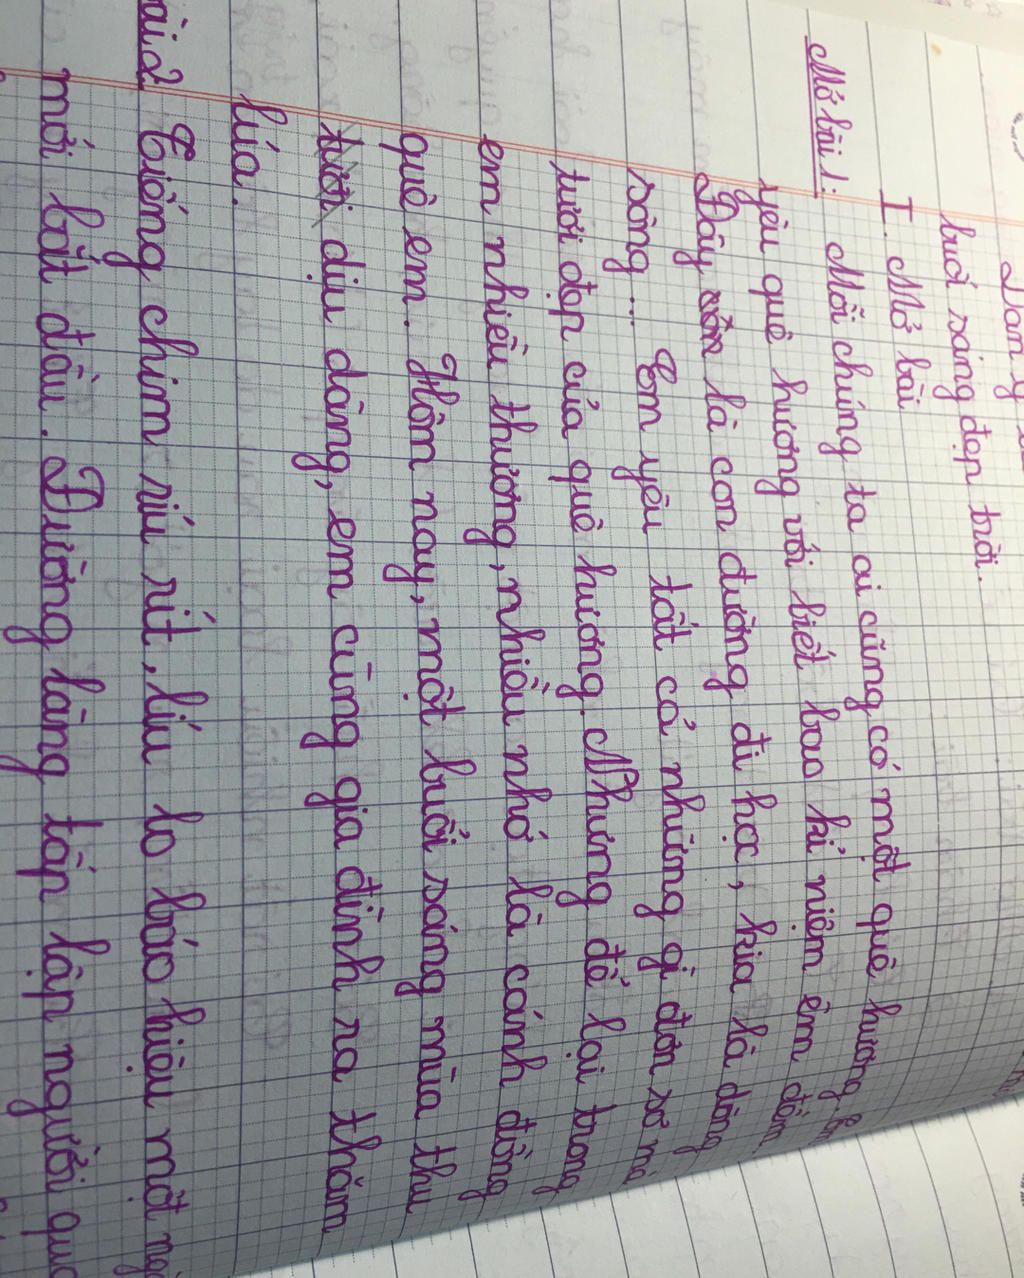 buổi sáng đẹp trời.
I. Mở bài
Mở bài 1: Mỗi chúng ta ai cũng có một quê hương. Em
yêu quê hương với biết bao kỉ niệm êm đềm.
Đây là con đường đi học, kia là dòng
sông... Em yêu tất cả những gì đơn sơ mà
tươi đẹp của quê hương. Nhưng để lại trong
em nhiều thương, nhiều nhớ là cánh đồng
quê em. Hôm nay, một buổi sáng mùa thu
tươi dịu dàng, em cùng gia đình ra thăm
lúa.
bài 2 Tiếng chim ríu rít, líu lo báo hiệu một
mới bắt đầu. Đường làng tấp lập người qua